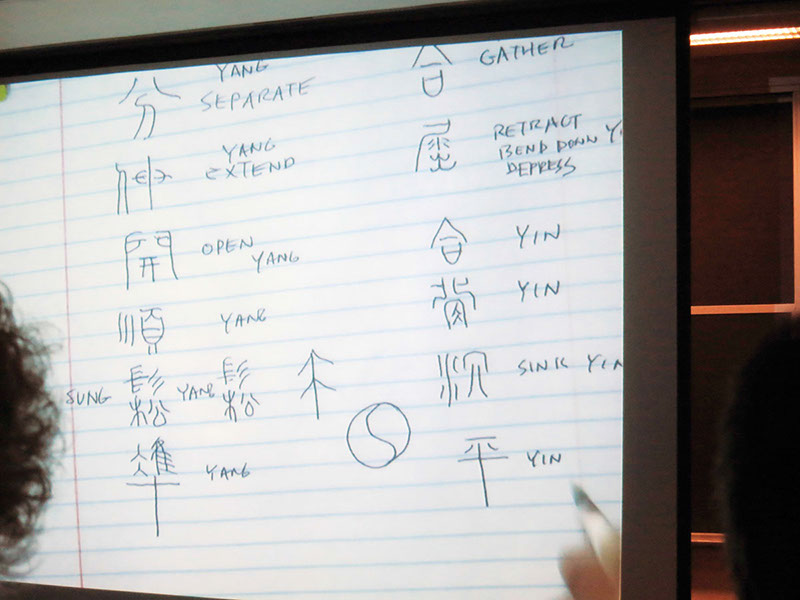 YANG
分 SEPARATE
合 GATHER
YANG
伸 EXTEND
RETRACT
BEND DOWN
DEPRESS
開 OPEN
YANG
合 YIN
順 YANG
背 YIN
SUNG 鬆 YANG 鬆
沉 SINK YIN
YANG
平 YIN